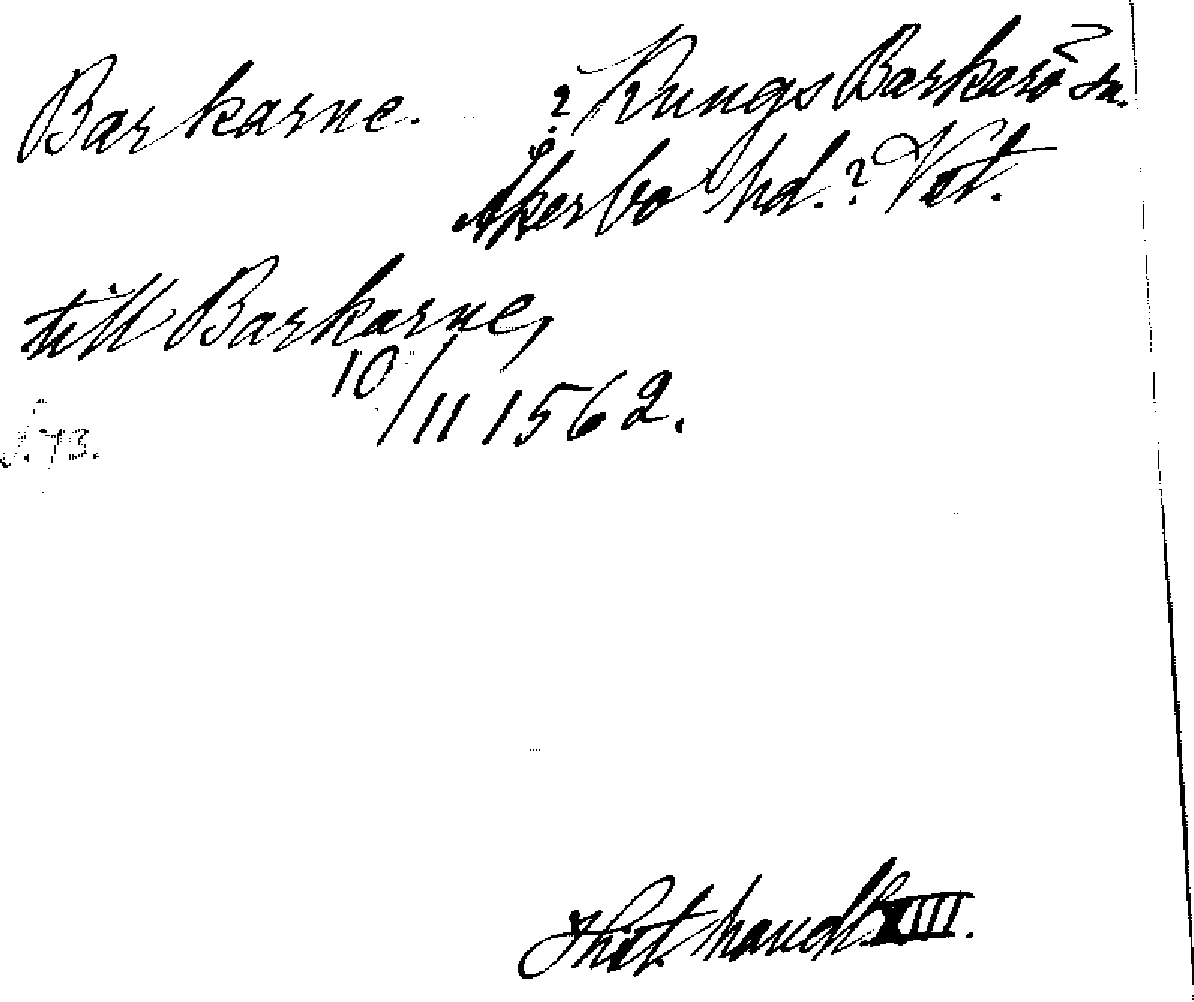 Barkarne. ? Kungs Barkarö sn.
Åkerbo hd.? Vst.
till Barkarne,
10/11 1562.
S. 73.
Hist. handl. XIII.